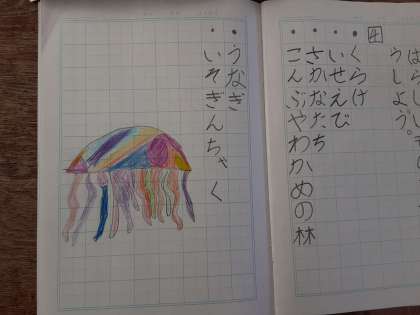 うしよう
4
・くらげ
・いせえび
・さかなたち
・こんぶやわかめの林
・うなぎ
・いそぎんちゃく